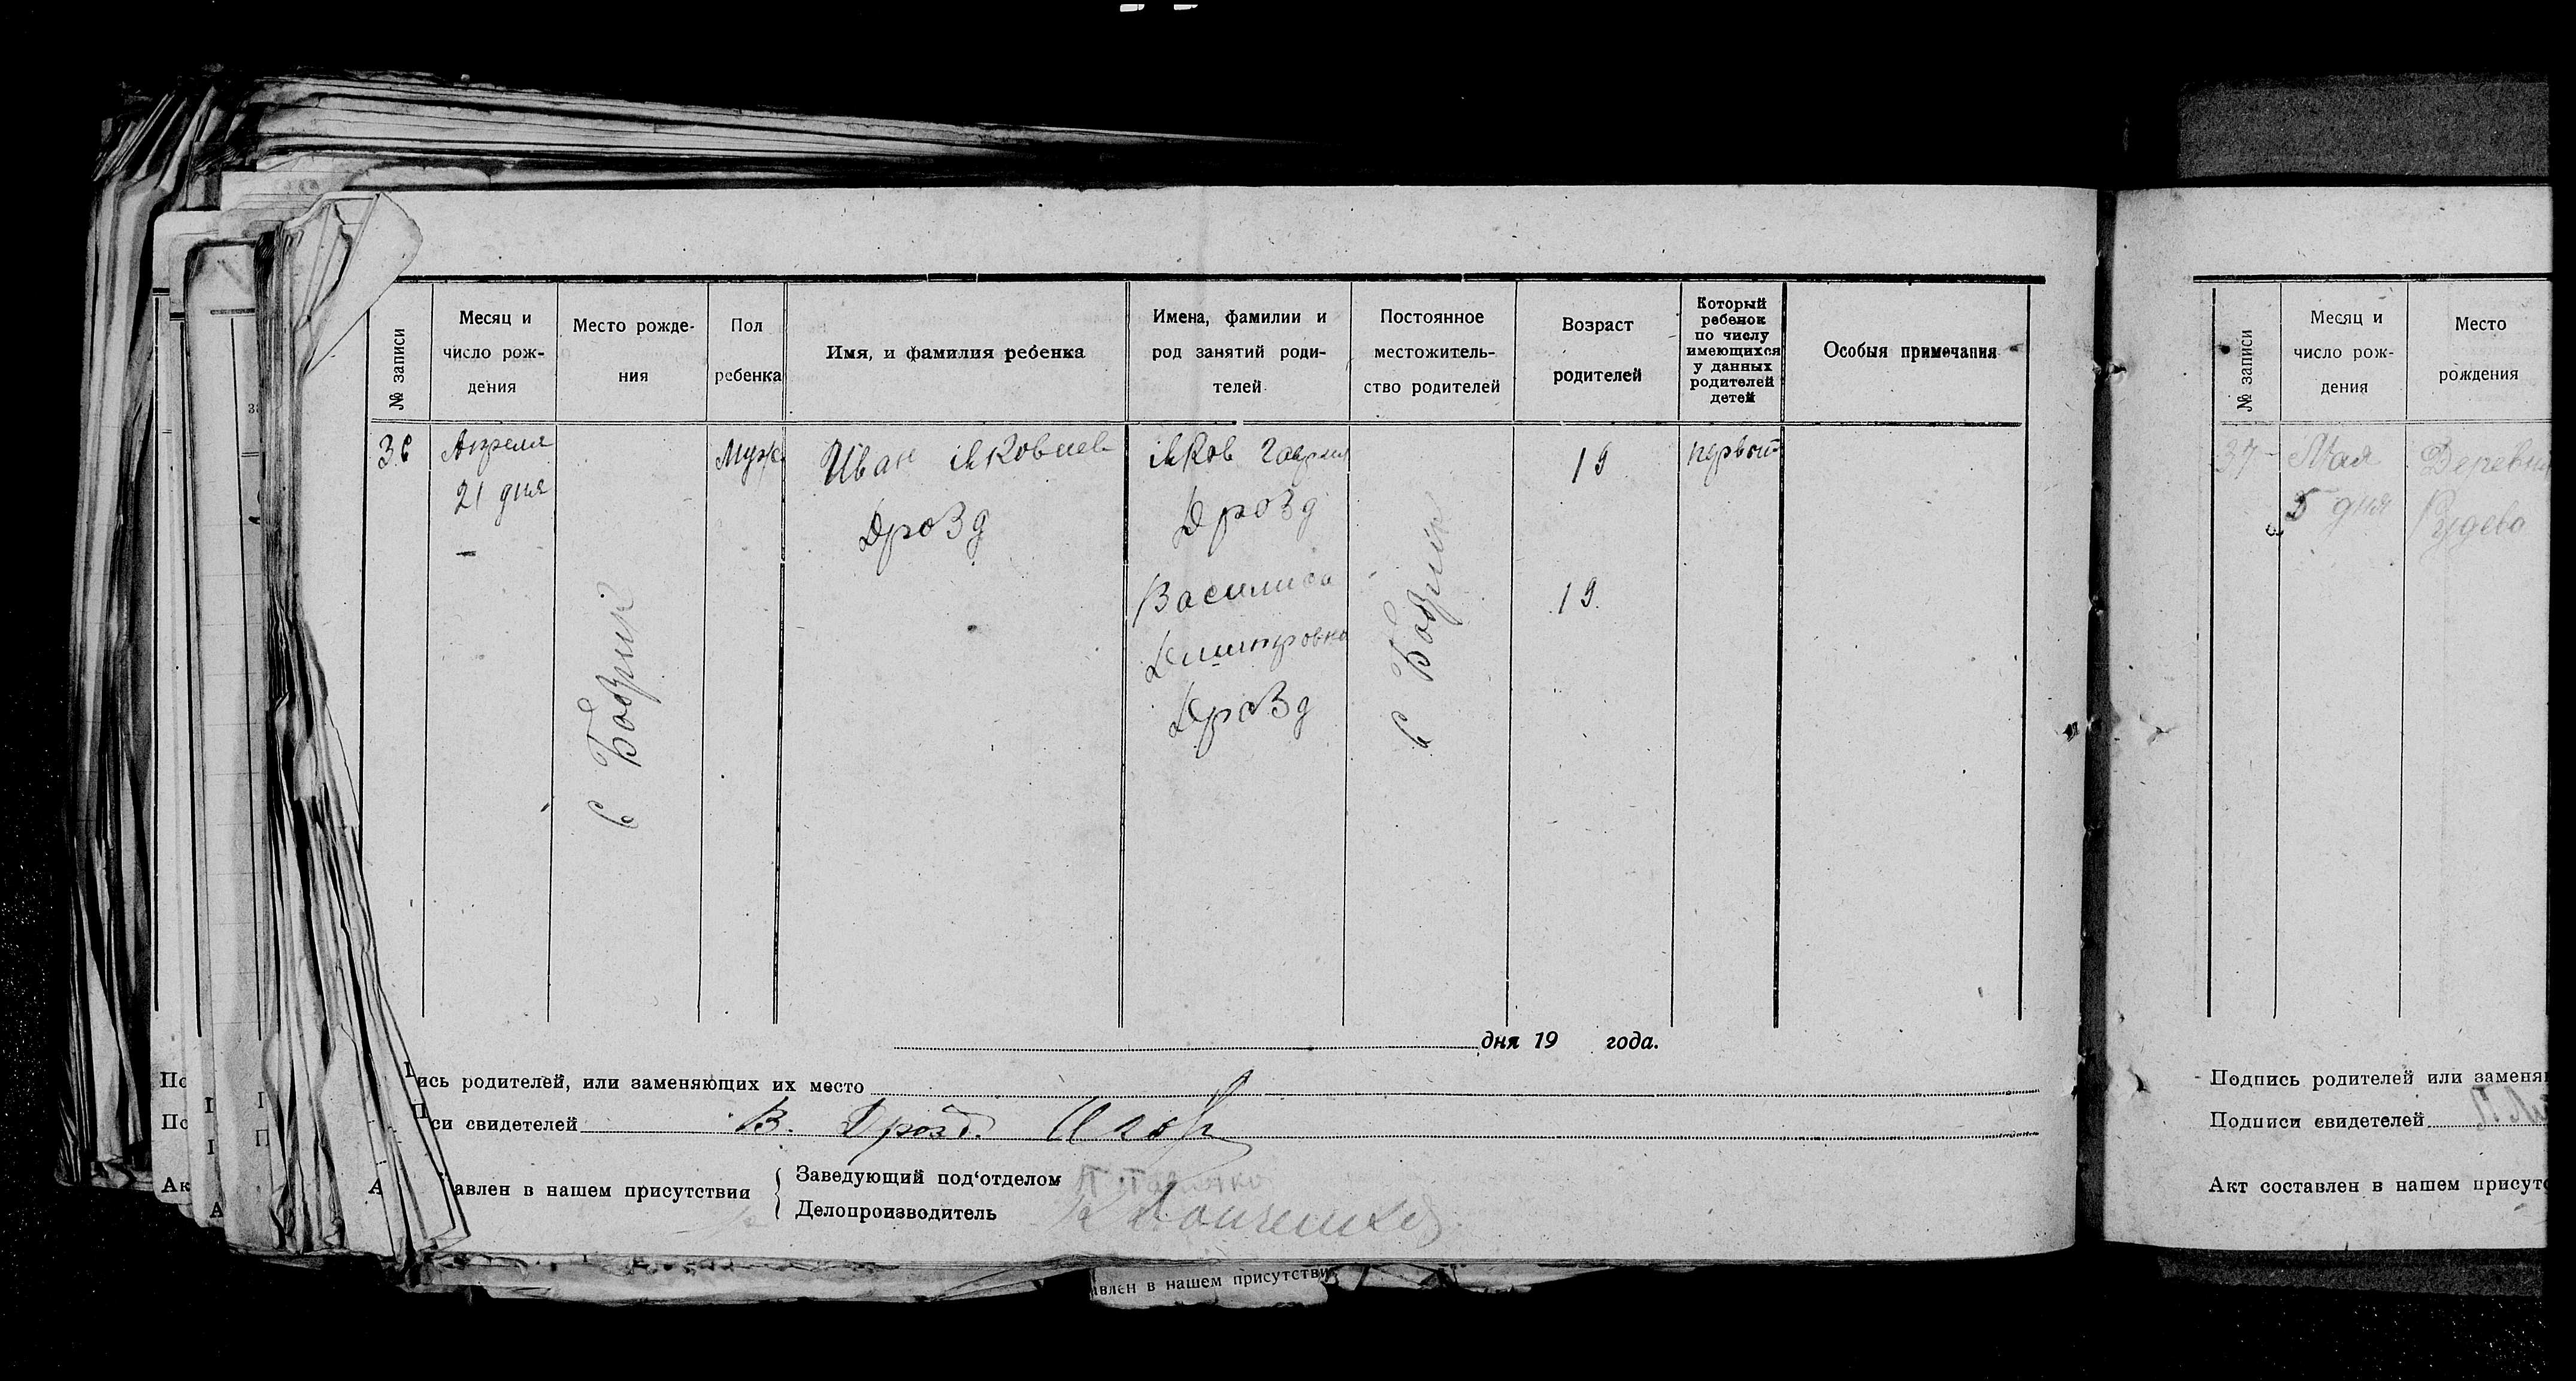 № записи
Месяц и число рож-дения
Место рожде-ния
Пол ребенка
Имя, и фамилия ребенка
Имена, фамилии и род занятий роди-телей
Постоянное местожитель-ство родителей
Возраст родителей
Который ребенок по числу имеющихся у данных родителей детей
Особыя примечания
36
Апреля
21 дня
с Бобрик
Муж
Иван Яковлев
Дрозд
Яков Гаврил
Дрозд
Василиса
Дмитровна
Дрозд
с Бобрик
19
19
первый
дня 19 года.
ись родителей, или заменяющих их место
си свидетелей В. Дрозд.
авлен в нашем присутствии
Заведующий под‘отделом
Делопроизводитель
влен в нашем присутстви
№ записи
Месяц и число рож-дения
Место рождения
37
Мая
5 дня
Деревня
Рудево
Подпись родителей или заменя
Подписи свидетелей
Акт составлен в нашем присутс